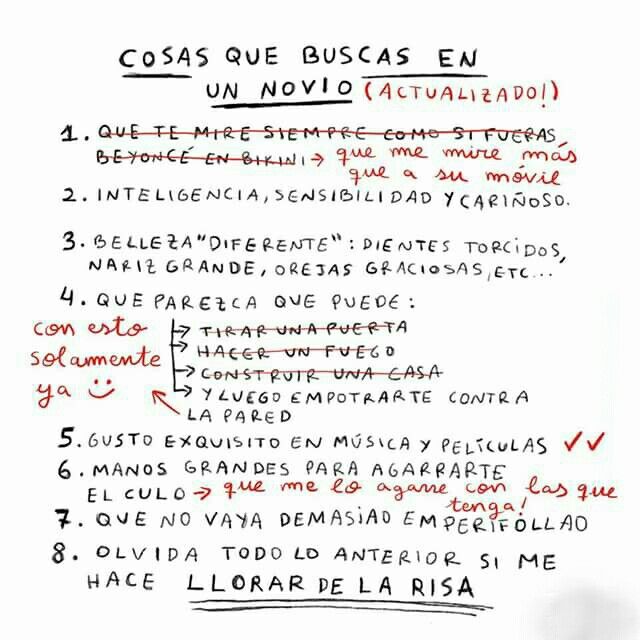 COSAS QUE BUSCAS EN
UN NOVIO (ACTUALIZADO!)
1. QUE TE MIRE SIEMPRE COMO SI FUERAS
BEYONCÉ EN BIKINI → que me mire más
que a su móvil
2. INTELIGENCIA, SENSIBILIDAD Y CARIÑOSO.
3. BELLEZA "DIFERENTE": DIENTES TORCIDOS,
NARIZ GRANDE, OREJAS GRACIOSAS, ETC...
4. QUE PAREZCA QUE PUEDE:
con esto
solamente
ya :)
→ TIRAR UNA PUERTA
→ HACER UN FUEGO
→ CONSTRUIR UNA CASA
→ Y LUEGO EMPOTRARTE CONTRA
LA PARED
5. GUSTO EXQUISITO EN MÚSICA Y PELÍCULAS ✓✓
6. MANOS GRANDES PARA AGARRARTE
EL CULO → que me lo agarre con las que
tenga!
7. QUE NO VAYA DEMASIAO EMPERIFÓLLAO
8. OLVIDA TODO LO ANTERIOR SI ME
HACE LLORAR DE LA RISA